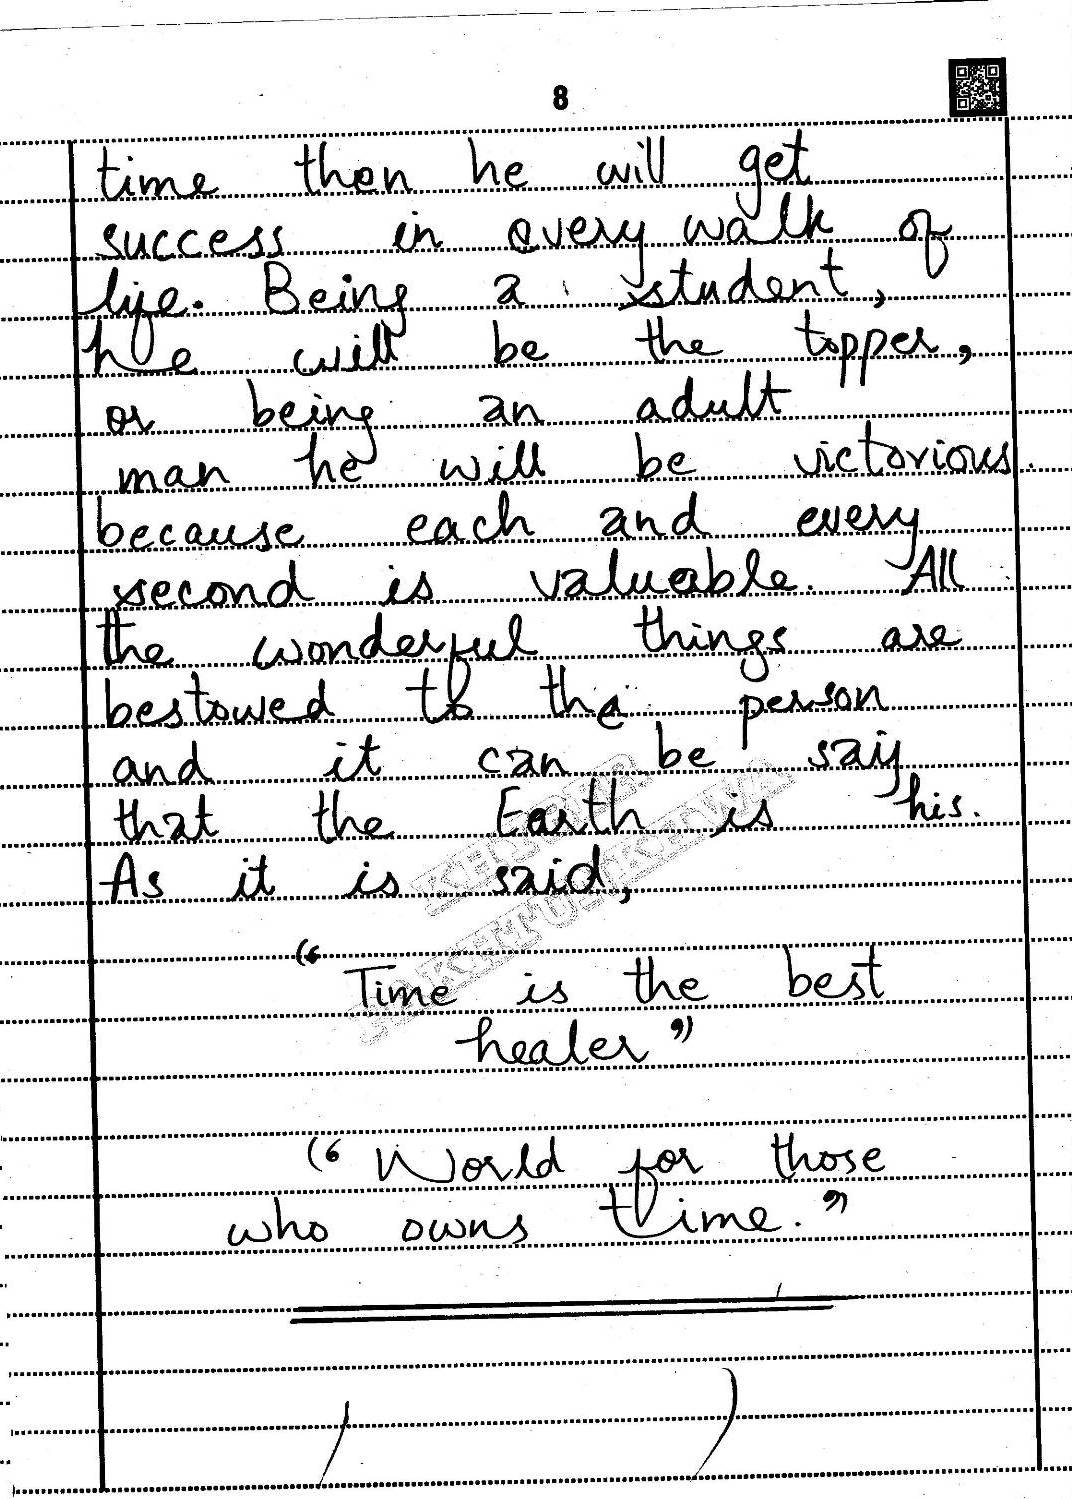 8
time then he will get
success in every walk of
life. Being a student,
he will be the topper,
or being an adult
man he will be victorious.
because each and every
second is valuable. All
the wonderful things are
bestowed to the person
and it can be say
that the Earth is his.
As it is said,
KHYBER
PAKHTUNKHWA
“Time is the best
healer”
“World for those
who owns time.”